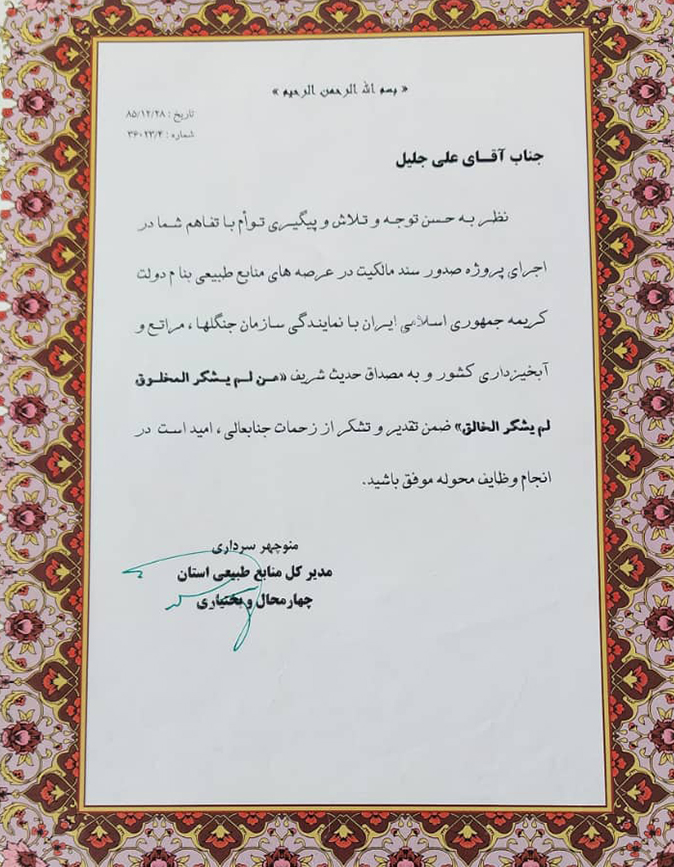 « بسم الله الرحمن الرحیم »
تاریخ : ۸۵/۱۲/۲۸
شماره : ۳۶۰۲۳/۴
جناب آقـــای علی جلیل
نظر به حسن توجه و تلاش و پیگیری توأم با تفاهم شما در
اجرای پروژه صدور سند مالکیت در عرصه های منابع طبیعی بنام دولت
کریمه جمهوری اسلامی ایران با نمایندگی سازمان جنگلها ، مراتع و
آبخیزداری کشور و به مصداق حدیث شریف «من لـم یـشکر المخلـوق
لم یشکر الخالق» ضمن تقدیر و تشکر از زحمات جنابعالی ، امید است در
انجام وظایف محوله موفق باشید.
منوچهر سرداری
مدیر کل منابع طبیعی استان
چهارمحال و بختیاری